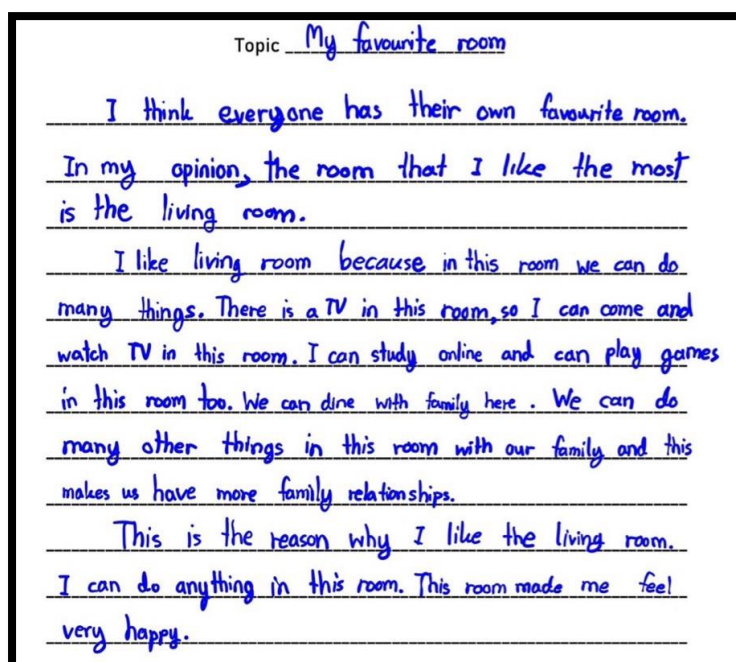 Topic My favourite room
I think everyone has their own favourite room.
In my opinion, the room that I like the most
is the living room.
I like living room because in this room we can do
many things. There is a TV in this room, so I can come and
watch TV in this room. I can study online and can play games
in this room too. We can dine with family here. We can do
many other things in this room with our family and this
makes us have more family relationships.
This is the reason why I like the living room.
I can do anything in this room. This room made me feel
very happy.